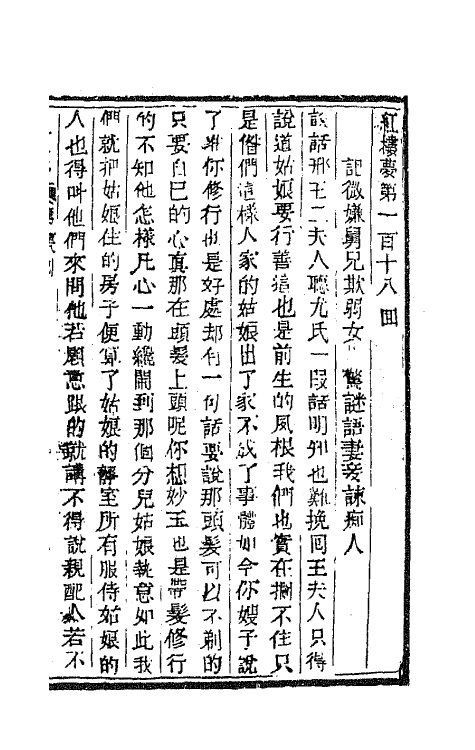 紅樓夢第一百十八回
記微嫌舅兄欺弱女 驚謎語妻妾諫痴人
說話邢王二夫人聽尤氏一段話明知也難挽囘王夫人只得
說道姑娘要行善這也是前生的夙根我們也實在攔不住只
是偺們這樣人家的姑娘出了家不成了事體如今你嫂子說
了准你修行也是好處却有一句話要說那頭髮可以不剃的
只要自已的心真那在頭髮上頭呢你想妙玉也是帶髮修行
的不知他怎樣凡心一動纔鬧到那個分兒姑娘執意如此我
們就把姑娘住的房子便算了姑娘的靜室所有服侍姑娘的
人也得叫他們來問他若願意跟的就講不得說親配人若不